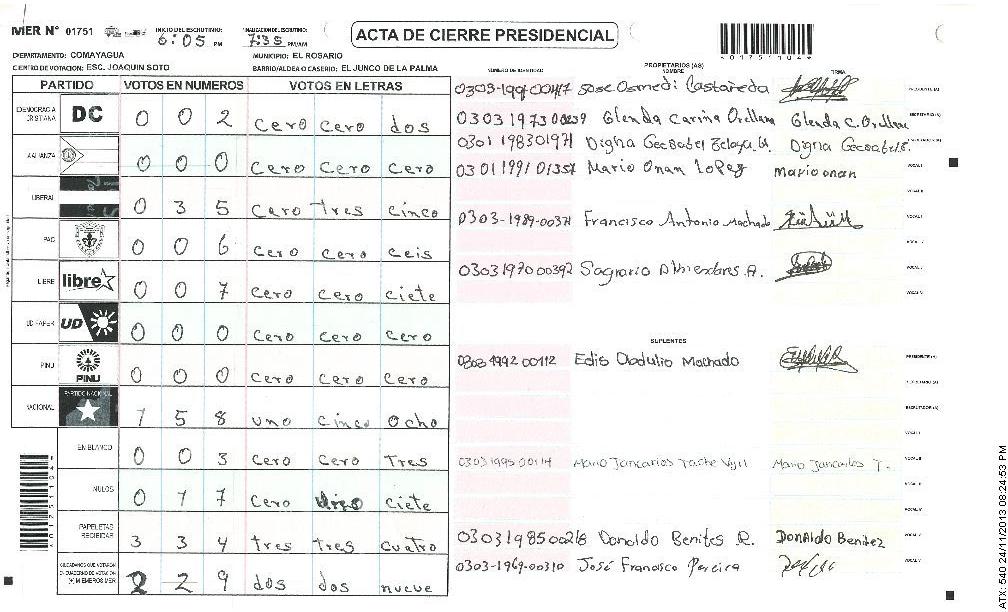 MER Nº 01751
INICIO DEL ESCRUTINIO: 6:05 PM
FINALIZACION DEL ESCRUTINIO: 7:35 PM/AM
ACTA DE CIERRE PRESIDENCIAL
DEPARTAMENTO: COMAYAGUA
MUNICIPIO: EL ROSARIO
CENTRO DE VOTACION: ESC. JOAQUIN SOTO
BARRIO/ALDEA O CASERIO: EL JUNCO DE LA PALMA
PARTIDO VOTOS EN NUMEROS VOTOS EN LETRAS
DEMOCRACIA CRISTIANA DC 0 0 2 cero cero dos
ALIANZA 0 0 0 cero cero cero
LIBERAL 0 3 5 cero tres cinco
PAC 0 0 6 cero cero ceis
LIBRE libre 0 0 7 cero cero ciete
UD FAPER UD 0 0 0 cero cero cero
PINU PINU 0 0 0 cero cero cero
NACIONAL PARTIDO NACIONAL 1 5 8 uno cinco ocho
EN BLANCO 0 0 3 cero cero tres
NULOS 0 1 7 cero uno ciete
PAPELETAS RECIBIDAS 3 3 4 tres tres cuatro
CIUDADANOS QUE VOTARON EN CUADERNO DE VOTACION (+) MIEMBROS MER 2 2 9 dos dos nueve
NUMERO DE IDENTIDAD PROPIETARIOS (AS) NOMBRE FIRMA
Jose Osmedi Castañeda PRESIDENTE (A)
Glenda Carina Orellana Glenda C. Orellana SECRETARIO (A)
Digna
0301 1991 01351 Mario Onan Lopez Mario onan VOCAL I
VOCAL II
0303-1989-00371 Francisco Antonio Machado
0303 1970 00392 Sagrario Almendares A.
SUPLENTES
1992 00112 Edis Obdulio Machado PRESIDENTE (A)
SECRETARIO (A)
ESCRUTADOR (A)
VOCAL I
0303 1995 00114 Mario Jancarlos Vgil Mario Jancarlos T. VOCAL II
0303 1985 00218 Donaldo Benites R. DonAldo Benitez
0303-1969-00310 José Francisco Pereira
ATX: 540 24/11/2013 08:24:53 PM